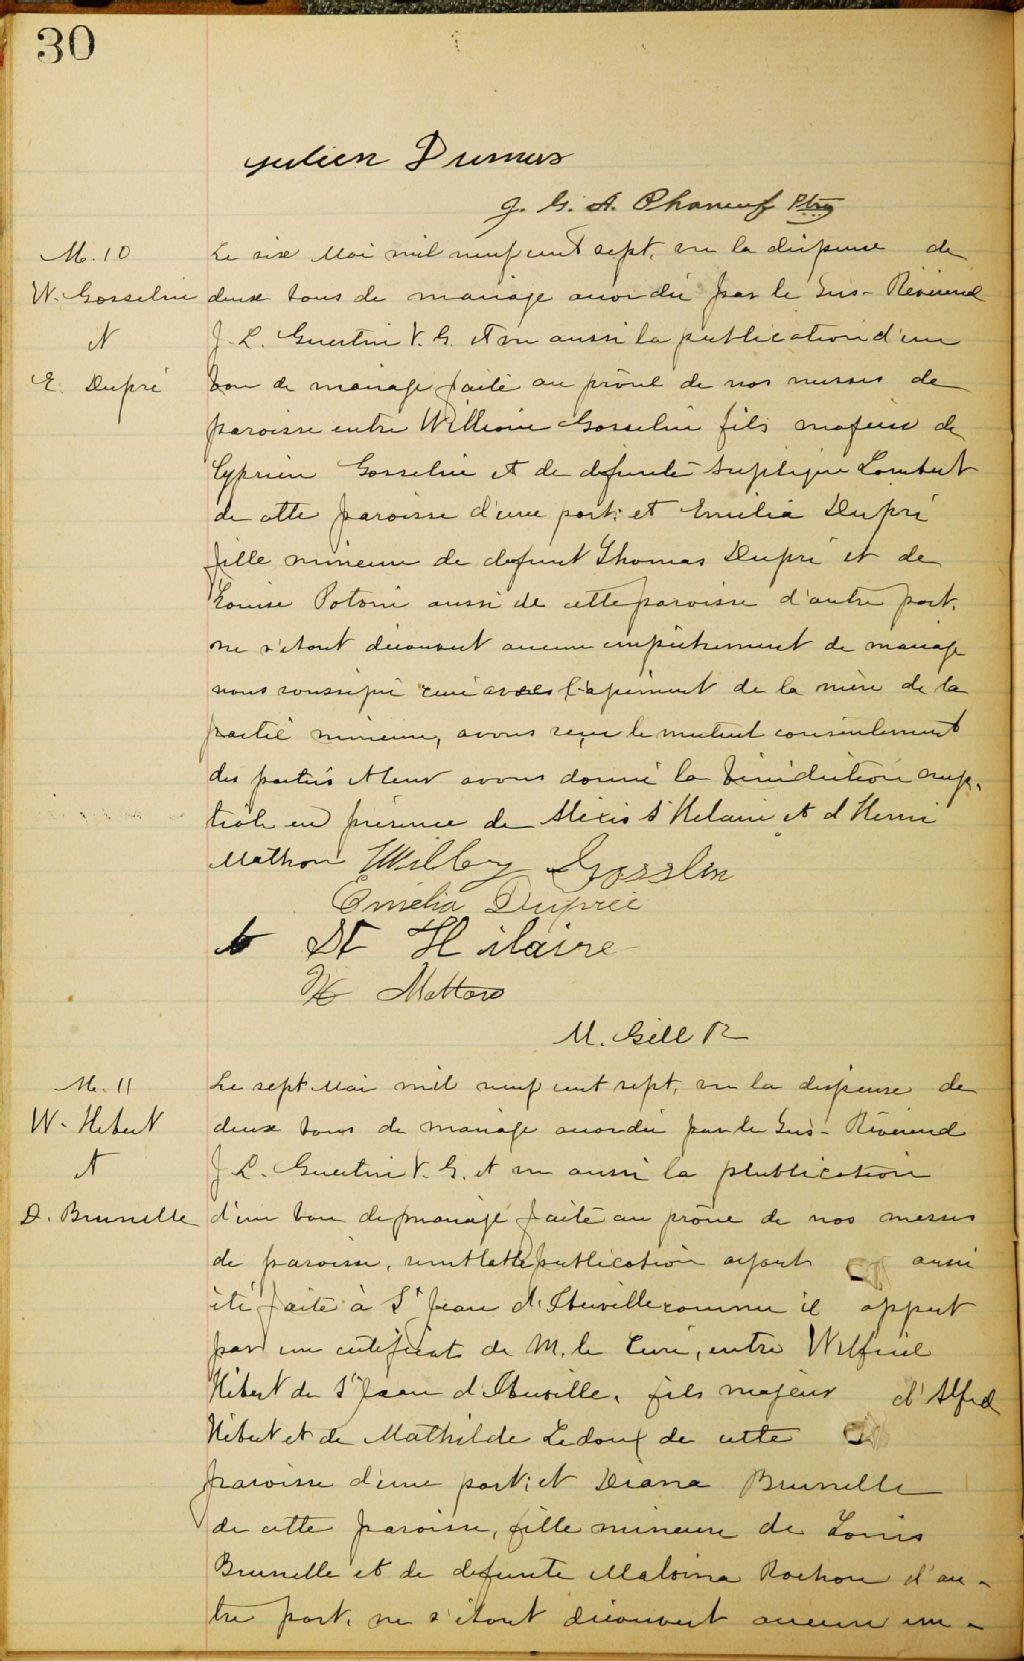 30
Julien Dumas
J. G. A. Phaneuf Ptre
M. 10
W. Gosselin
et
E. Dupré
Le six Mai mil neuf cent sept, vu la dispense de
deux bans de mariage accordée par le Très-Révérend
J. L. Guertin V. G. et vu aussi la publication d'un
ban de mariage faite au prône de nos messes de
paroisse entre William Gosselin fils majeur de
Cyprien Gosselin et de défunte Lambert
de cette paroisse d'une part; et Emélia Dupré
fille mineure de defunt Thomas Dupré et de
Louise Potvin aussi de cette paroisse d'autre part,
ne s'étant découvert aucun empêchement de mariage
nous soussigné curé avec l'agrément de la mère de la
partie mineure, avons reçu le mutuel consentement
des parties et leur avons donné la bénédiction nup-
tiale en présence de Alexis St Hilaire et d'Henri
Mathon Willey Gosslin
Emélia Dupréé
St Hilaire
H Mattow
M. Gill Ptr
M. 11
W. Hebert
et
D. Brunelle
Le sept Mai mil neuf cent sept, vu la dispense de
deux bans de mariage accordée par le Très-Révérend
J. L. Guertin V. G. et vu aussi la publication
d'un ban de mariage faite au prône de nos messes
de paroisse, semblable publication ayant aussi
été faite à St Jean d'Iberville comme il appert
par un certificat de M. le Curé, entre Wilfrid
Hébert de St Jean d'Iberville, fils majeur d'Alfred
Hébert et de Mathilde Ledoux de cette
paroisse d'une part; et Diana Brunelle
de cette paroisse, fille mineure de Louis
Brunelle et de defunte Malvina Rochon d'au-
tre part, ne s'étant découvert aucun em-